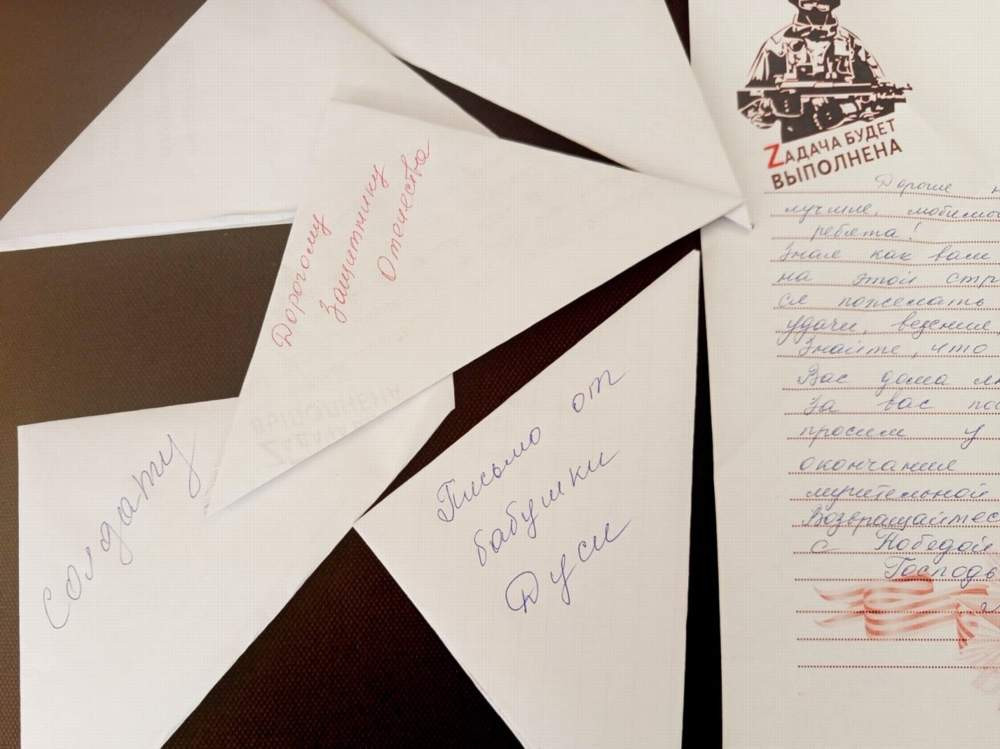 Солдату
Дорогому
Защитнику
Отечества
Письмо от
бабушки
Дуси
ZАДАЧА БУДЕТ
ВЫПОЛНЕНА
Дорогие
лучшие, любимы
ребята!
Зная как вам
на этой стр
ся пожелать
удачи, везения,
Знайте, что
Вас дома
За вас
просим у
окончания
мучительной
Возвращайтес
с Победой
Господь